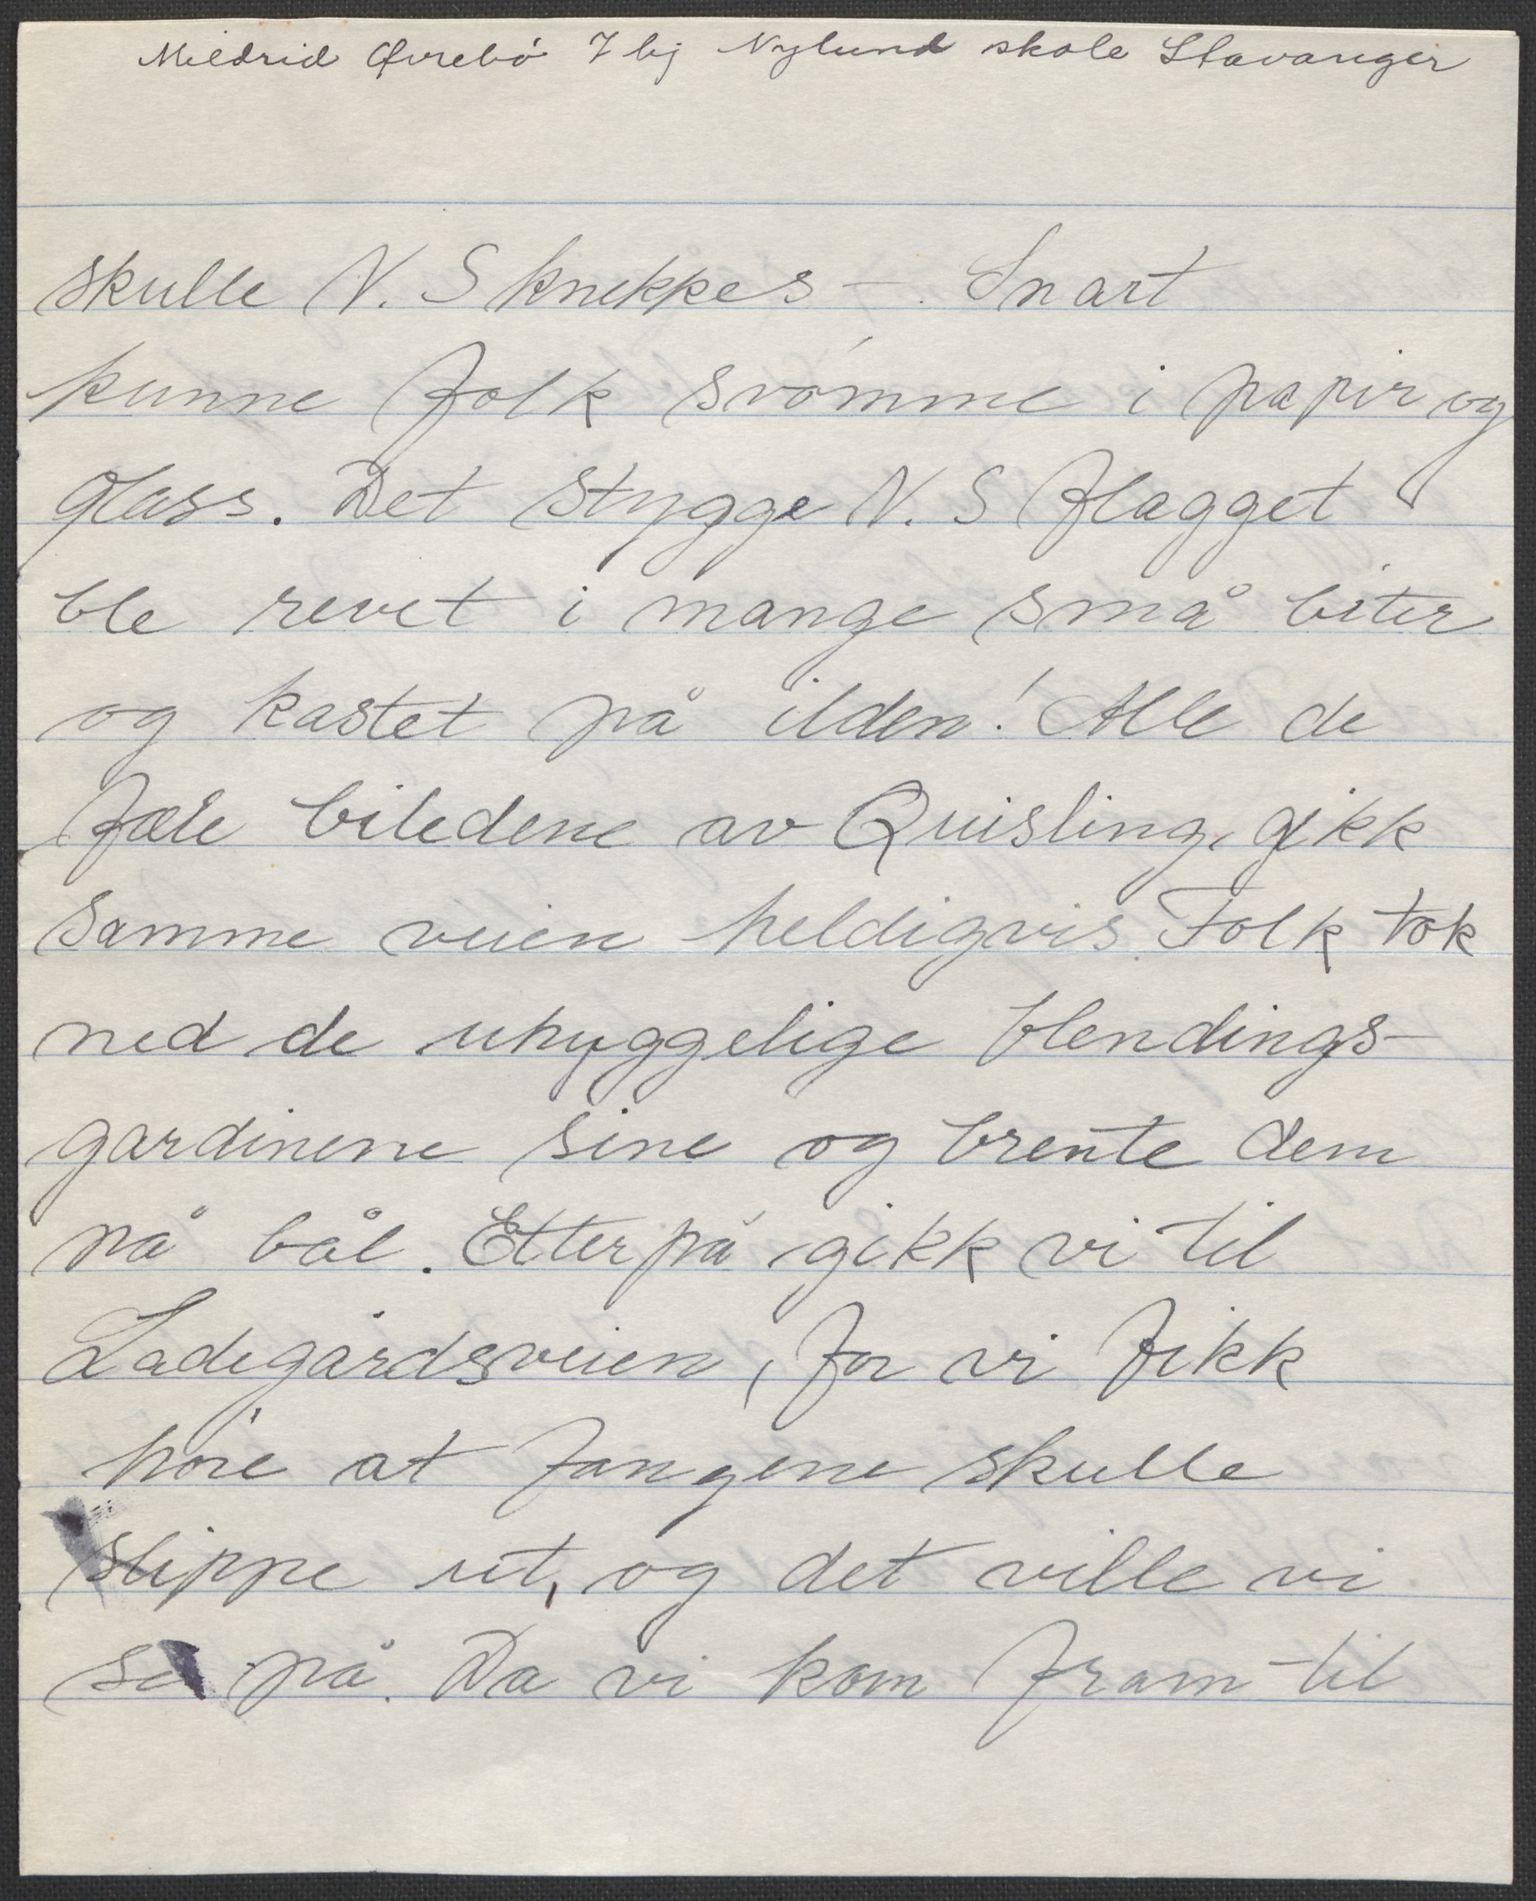 Mildrid Øvrebó 7 bj Nylund skole Stavanger
skulle N. S knekkes –. Snart
kunne folk svómme i papir og
glass. Det stygge N. S flagget
ble revet i mange små biter
og kastet på ilden! Alle de
fæle biledene av Quisling, gikk
samme veien heldigvis. Folk tok
ned de uhyggelige blendings-
gardinene sine og brente dem
på bål. Etterpå gikk vi til
Ladegårdsveien, for vi fikk
hóre at fangene skulle
slippe ut, og det ville vi
se på. Da vi kom fram til